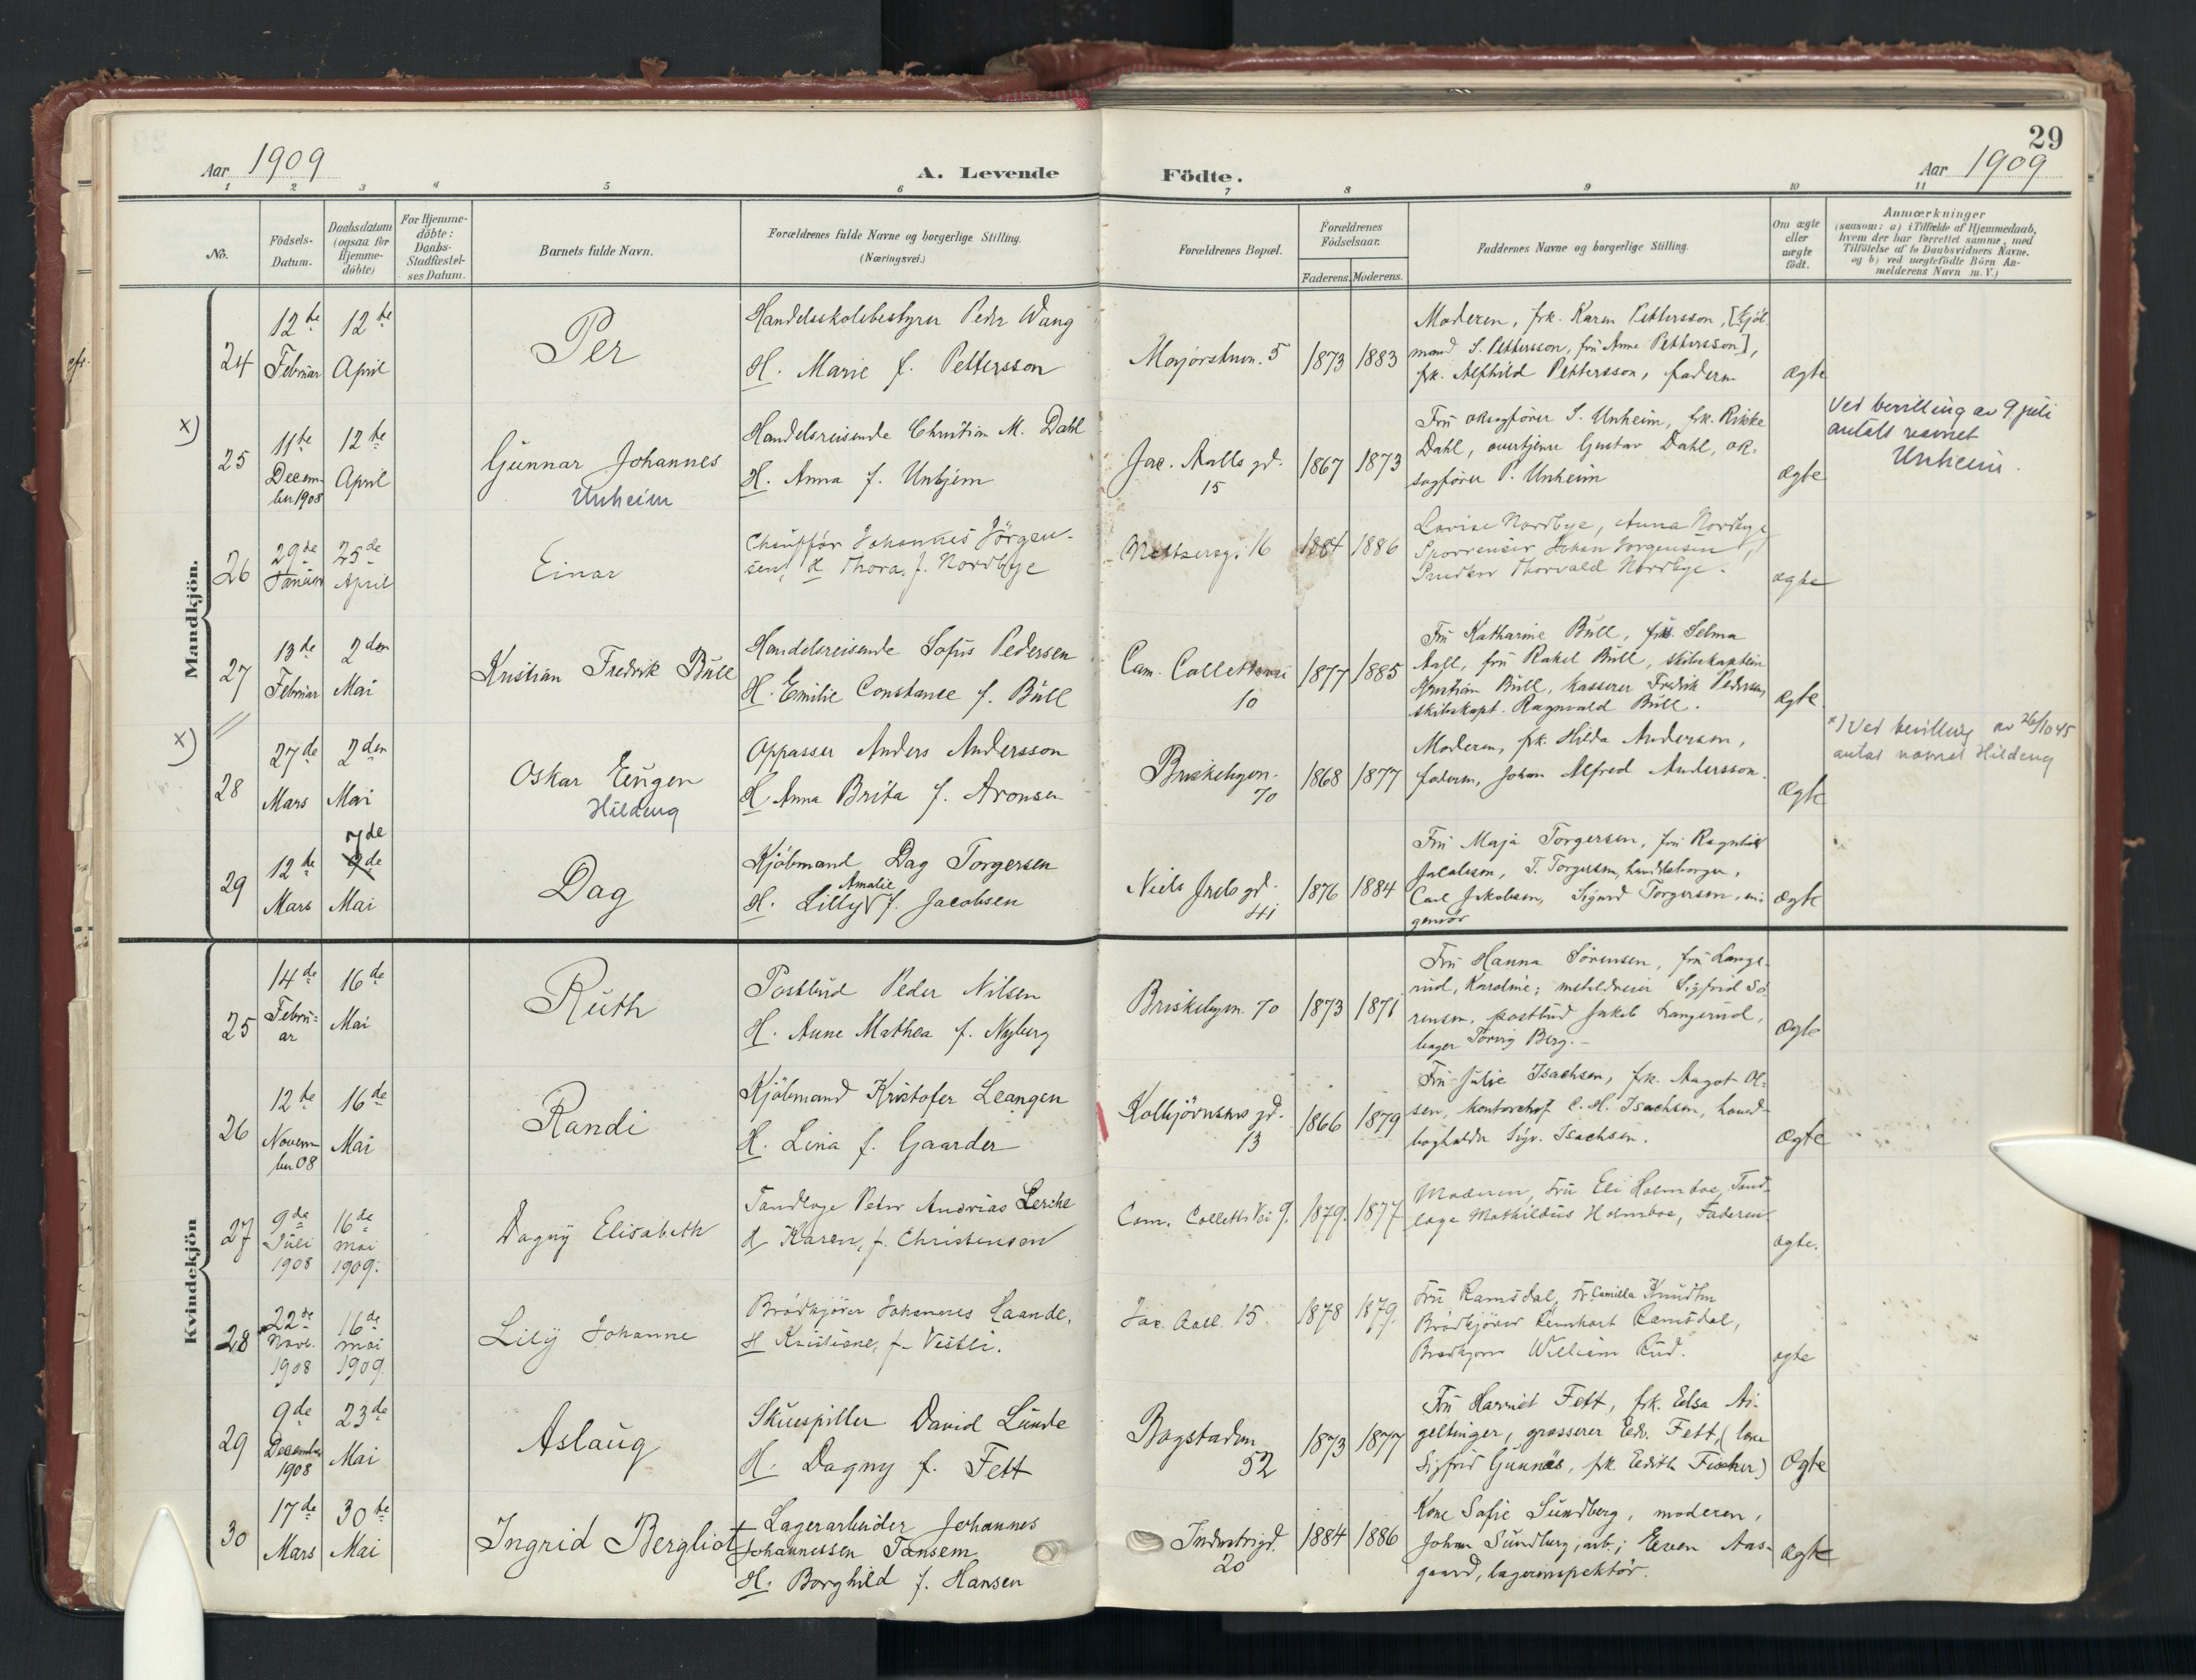 29
Aar 1909
A. Levende Födte.
Aar 1909
1 2 3 4 5 6 7 8 9 10 11
No.
Födsels-Datum.
Daabsdatum (ogsaa for Hjemme-döbte)
For Hjemme-döbte: Daabs-Stadfæstel-ses Datum.
Barnets fulde Navn.
Forældrenes fulde Navne og borgerlige Stilling. (Næringsvei.)
Forældrenes Bopæl.
Forældrenes Födselsaar.
Faderens. Moderens.
Faddernes Navne og borgerlige Stilling.
Om ægte eller uægte födt.
Anmærkninger
(saasom: a) i Tilfælde af Hjemmedaab,
hvem der har forrettet samme, med
Tilföielse af to Daabsvidners Navne.
og b) ved uægtefödte Börn An-
melderens Navn m. V.)
Mandkjön.
24
12te Februar
12te April
Per
Handelsskolebestyrer Peder Wang
H. Marie f. Pettersson
Majorstuen. 5
1873 1883
Moderen, frk. Karen Pettersson, [kjöb
mand S. Pettersson, fru Anna Pettersson],
frk. Alfhild Pettersson, faderen
ægte
x)
25
11te Decem-ber 1908
12te April
Gunnar Johannes
Unheim
Handelsreisende Christian M. Dahl
H. Anna f. Unhjem
Jac. Aalls gd. 15
1867 1873
Fru oksagförer S. Unheim, frk. Rikke
Dahl, overtjener Gustav Dahl, ok-
sagförer P. Unheim
ægte
Ved bevilling av 9 juli
antatt navnet
Unheim.
26
29de Januar
25de April
Einar
Chaufför Johannes Jörgen-
sen, H Thora, f. Nordbye
16
1884 1886
Lovise Nordbye, Anna Nordbye
Johan Jorgensen,
Snedker Thorvald Nordbye.
ægte
27
13de Februar
2den Mai
Kristian Fredrik Bull
Handelsreisende Sofus Pedersen
H. Emilie Constance f. Bull
Cam. Collettsvei 10
1877 1885
Fru Katharine Bull, frk. Selma
Aall, fru Rakel Bull, skibskaptein
Kristian Bull, kasserer Fredrik Pedersen,
skibskapt. Ragnvald Bull.
ægte
x)
28
27de Mars
2den Mai
Oskar Eugen
Hildeng
Oppasser Anders Andersson
H. Anna Brita f. Aronsen
Briskebyvn. 70
1868 1877
Moderen, frk. Hilda Andersen,
faderen, Johan Alfred Andersson.
ægte
x) Ved bevilling av 26/10 45
antat navnet Hildeng
29
12te Mars
7de
9de
Mai
Dag
Kjöbmand Dag Torgersen
Amalie
H. Lilly f. Jacobsen
Niels Juels gd. 41
1876 1884
Fru Maja Torgersen, fru Ragnhild
Jacobsen, T. Torgersen, handelsborger,
Carl Jakobsen, Sigurd Torgersen, in-
geniör
ægte
Kvindekjön
25
14de Febru-ar
16de Mai
Ruth
Postbud Peder Nilsen
H. Anne Mathea f. Nyberg
Briskebyvn. 70
1873 1871
Fru Hanna Sörensen, fru Lange-
rud, Karoline; Sigfrid Sö-
rensen, postbud Jakob Langerud,
Berg.
ægte
26
12te Novem-ber 08
16de Mai
Randi
Kjöbmand Kristofer Leangen
H. Lina f. Gaarder
Kolbjörnsens gd. 13
1866 1879
Fru Julie Isachsen, frk. Aagot Ol-
sen, kontorchef C. H. Isachsen,
bogholder Sigv. Isachsen.
ægte
27
9de Juli 1908
16de mai 1909.
Dagny Elisabeth
Tandlæge Peter Andrias Lerche
H Karen, f. Christensen
Cam. Colletts Vei 9.
1879. 1877
Moderen, Fru Eli Holmboe, Tand-
læge Mathildus Holmboe, Faderen.
ægte.
28
22de Novb. 1908
16de mai 1909
Lily Johanne
Brödkjörer Johannes Haande.
H Kristiane, f. Vestli.
Jac. Aall. 15.
1878 1879.
Fru Ramsdal, Fr. Camilla Knudsen
Brödkjörer Reinhart Ramsdal,
Brödkjörer William Rud.
ægte
29
9de December 1908
23de Mai
Aslaug
Skuespiller David Lunde
H. Dagny f. Fett
Bogstadvn 52
1873 1877
Fru Harriet Fett, frk. Elsa Ai-
geltinger, grosserer Edv. Fett, (
Sigfrid Gunnäs, frk. Eedith Fischer)
Ægte
30
17de Mars
30te Mai
Ingrid Bergliot
Lagerarbeider Johannes
Johannessen Tansem
H. Borghild f. Hansen
Industrigd. 20
1884 1886
Kone Sofie Sundberg, moderen,
Johan Sundberg, arb.; Even Aas-
gaard, lagerinspektör.
ægte